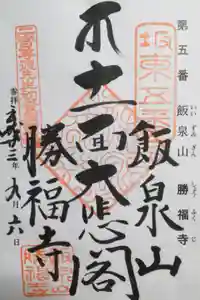 第五番 飯泉山 勝福寺
坂東五番
飯泉山
十一面大悲閣
勝福寺
参拝 平成廿三年九月六日